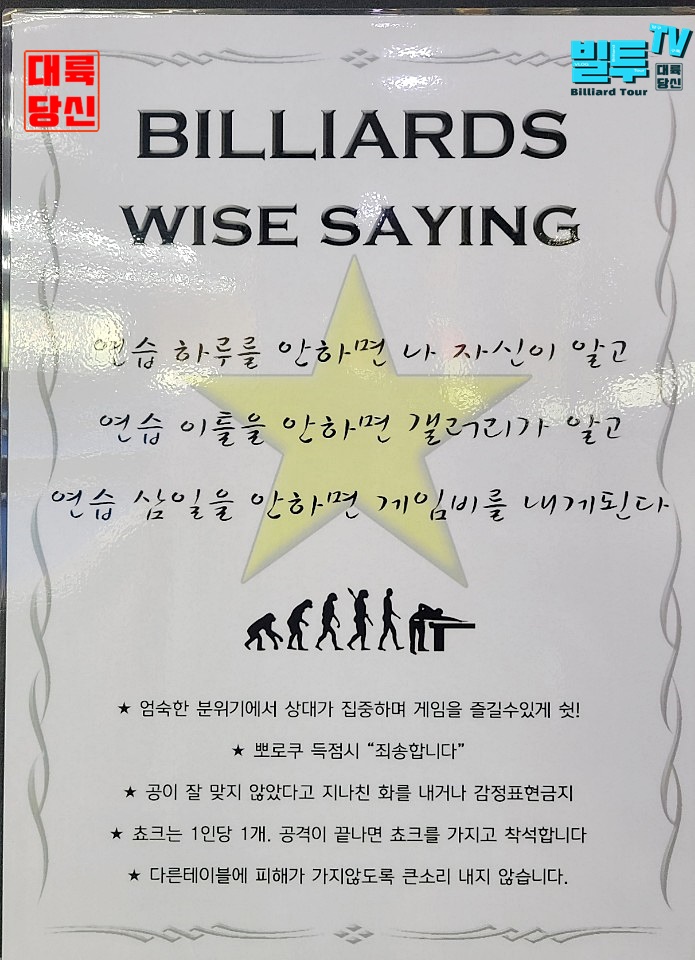 대륙
당신
빌투TV
대륙
당신
Billiard Tour
BILLIARDS
WISE SAYING
연습 하루를 안하면 나 자신이 알고
연습 이틀을 안하면 갤러리가 알고
연습 삼일을 안하면 게임비를 내게된다
★ 엄숙한 분위기에서 상대가 집중하며 게임을 즐길수있게 쉿!
★ 뽀로쿠 득점시 “죄송합니다”
★ 공이 잘 맞지 않았다고 지나친 화를 내거나 감정표현금지
★ 쵸크는 1인당 1개. 공격이 끝나면 쵸크를 가지고 착석합니다
★ 다른테이블에 피해가 가지않도록 큰소리 내지 않습니다.